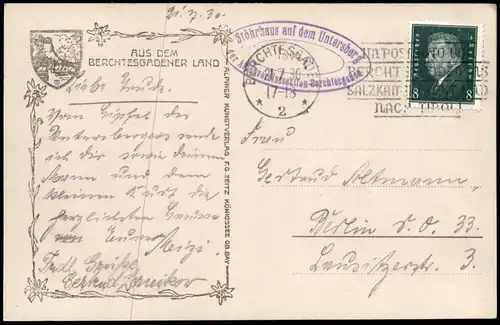 21.7.30.
AUS DEM
BERCHTESGADENER LAND
Liebe Trude.
Vom Gipfel des
Untersberges sende
ich dir sowie deinem
Mann und dem
kleinen Kurt die
herzlichsten Grüsse
Eurer
Frdl. Grüße
ALPINER KUNSTVERLAG F. G. ZEITZ, KÖNIGSSEE OB. BAY.
Stöhrhaus auf dem Untersberg
der Alpenvereinssektion Berchtesgaden
BERCHTESGADEN
21.7.30
17-18
* 2 *
BERCHTESGADEN
SALZKAMMERGUT
NACH
8 8
Frau
Gertrud Oltmann
Berlin S.O. 33.
Lausitzerstr. 3.